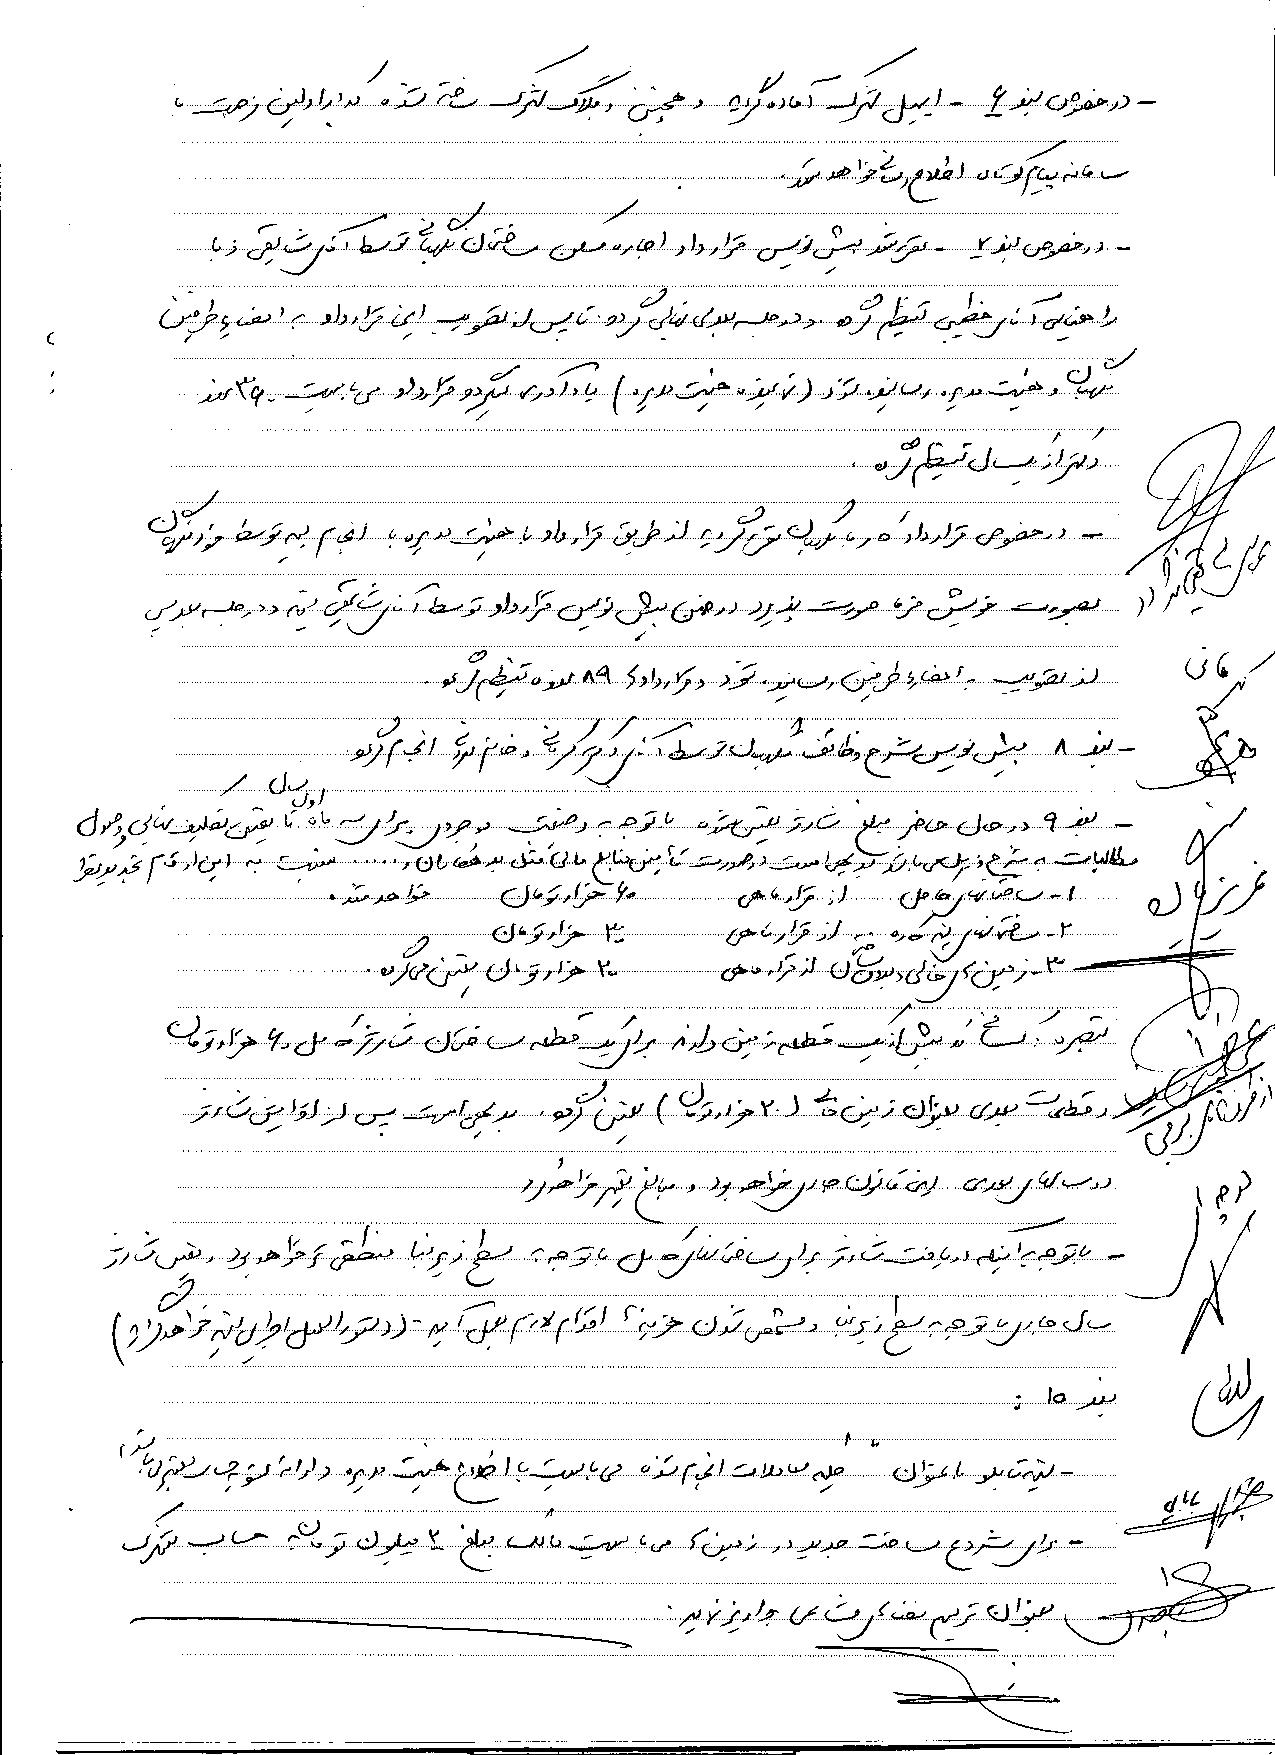 - در خصوص بند ۶ - ایمیل شهرک آماده گردید و همچنین وبلاگ شهرک ساخته شده که در اولین فرصت با
سامانه پیام کوتاه اطلاع رسانی خواهد شد.
- در خصوص بند ۷ - مقرر شد پیش نویس قرارداد اجاره مسکن ساختمان نگهبانی توسط آقای شایقی و با
راهنمایی آقای خطیبی تنظیم گردد و در جلسه بعدی نهایی گردد تا پس از تصویب این قرارداد به امضاء طرفین
نگهبان و هیئت مدیره رسانیده شود (نماینده هیئت مدیره) یادآوری میگردد قرارداد می بایست
کمتر از یکسال تنظیم گردد.
- در خصوص قراردادی که با نگهبان مقرر گردید از طریق قرارداد با هیئت مدیره یا انجام بیمه توسط خود نگهبان
بصورت خویش فرما صورت پذیرد در ضمن پیش نویس قرارداد توسط آقای شایقی تهیه و در جلسه بعدی پس
از تصویب به امضاء طرفین رسانیده شود و قرارداد ۸۹ روزه تنظیم گردد.
- بند ۸ پیش نویس شرح وظائف نگهبان توسط آقای دکتر کرمانی و خانم انجام گردد
- بند ۹ در حال حاضر مبلغ شارژ تعیین شده با توجه به وضعیت موجود برای سه ماه اول سال تا تعیین تکلیف نهائی وصول
مطالبات به شرح ذیل می باشد بدیهی است در صورت تأمین منابع مالی مثل بدهکاران و ..... نسبت به این ارقام تجدید نظر
۱- ساختمانهای کامل از قرار ماهی ۶۰ هزار تومان خواهد شد.
۲- ساختمانهای نیمه کاره از قرار ماهی ۳۰ هزار تومان
۳- زمین های خالی از قرار ماهی ۲۰ هزار تومان تعیین می گردد.
تبصره: کسانی که بیش از یک قطعه زمین دارند برای یک قطعه ساختمان شارژ کامل ۶۰ هزار تومان
و قطعات بعدی بعنوان زمین خالی (۲۰ هزار تومان) تعیین گردد. بدیهی است پس از افزایش شارژ
در سالهای بعدی این قانون جاری خواهد بود و مبالغ تغییر خواهد کرد
- با توجه به اینکه دریافت شارژ برای ساختمانهای کامل با توجه به سطح زیربنا منطقی تر خواهد بود، تعیین شارژ
سال جاری با توجه به سطح زیربنا و مشخص شدن هزینه ها اقدام لازم بعمل آید - (دستورالعمل اجرایی تهیه خواهد گردید)
بند ۱۰ :
- تهیه تابلو با عنوان " کلیه معاملات انجام شده می بایست با اطلاع هیئت مدیره و ارائه تسویه حساب معتبر باشد "
- برای شروع ساخت جدید در زمین ها می بایست مالک مبلغ ۲ میلیون تومان به حساب شهرک
بعنوان ترمیم فضای مشاعی واریز نماید.